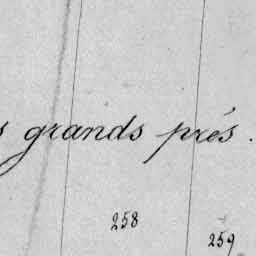 s grands prés.
258
259